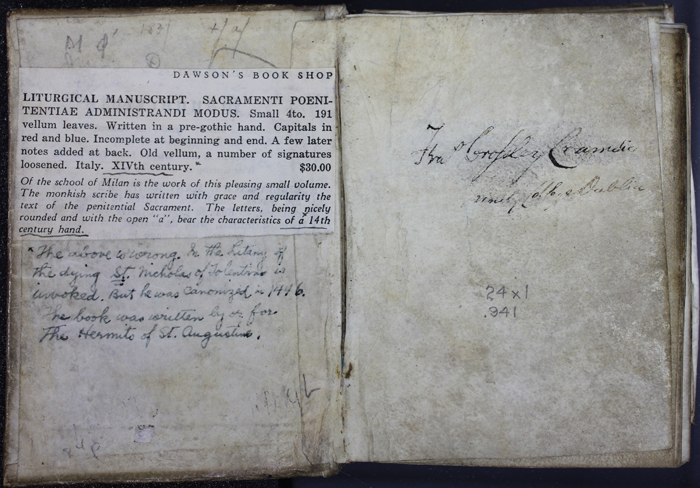 DAWSON'S BOOK SHOP
LITURGICAL MANUSCRIPT. SACRAMENTI POENI-
TENTIAE ADMINISTRANDI MODUS. Small 4to. 191
vellum leaves. Written in a pre-gothic hand. Capitals in
red and blue. Incomplete at beginning and end. A few later
notes added at back. Old vellum, a number of signatures
loosened. Italy. XIVth century.* $30.00
Of the school of Milan is the work of this pleasing small volume.
The monkish scribe has written with grace and regularity the
text of the penitential Sacrament. The letters, being nicely
rounded and with the open "a", bear the characteristics of a 14th
century hand.
*The above is wrong. In the Litany of
the dying St. Nicholas of Tolentino is
invoked. But he was canonized in 1446.
The book was written by or for
The Hermits of St. Augustine.
Crosley
Dublin
24 x 1
.341